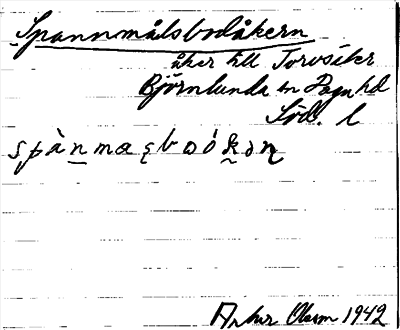 Spannmålsbodåkern
åker till Torvsäter
Björnlunda sn Daga hd
Söd. l
spànmaʂboókən
Artur Olsson 1942